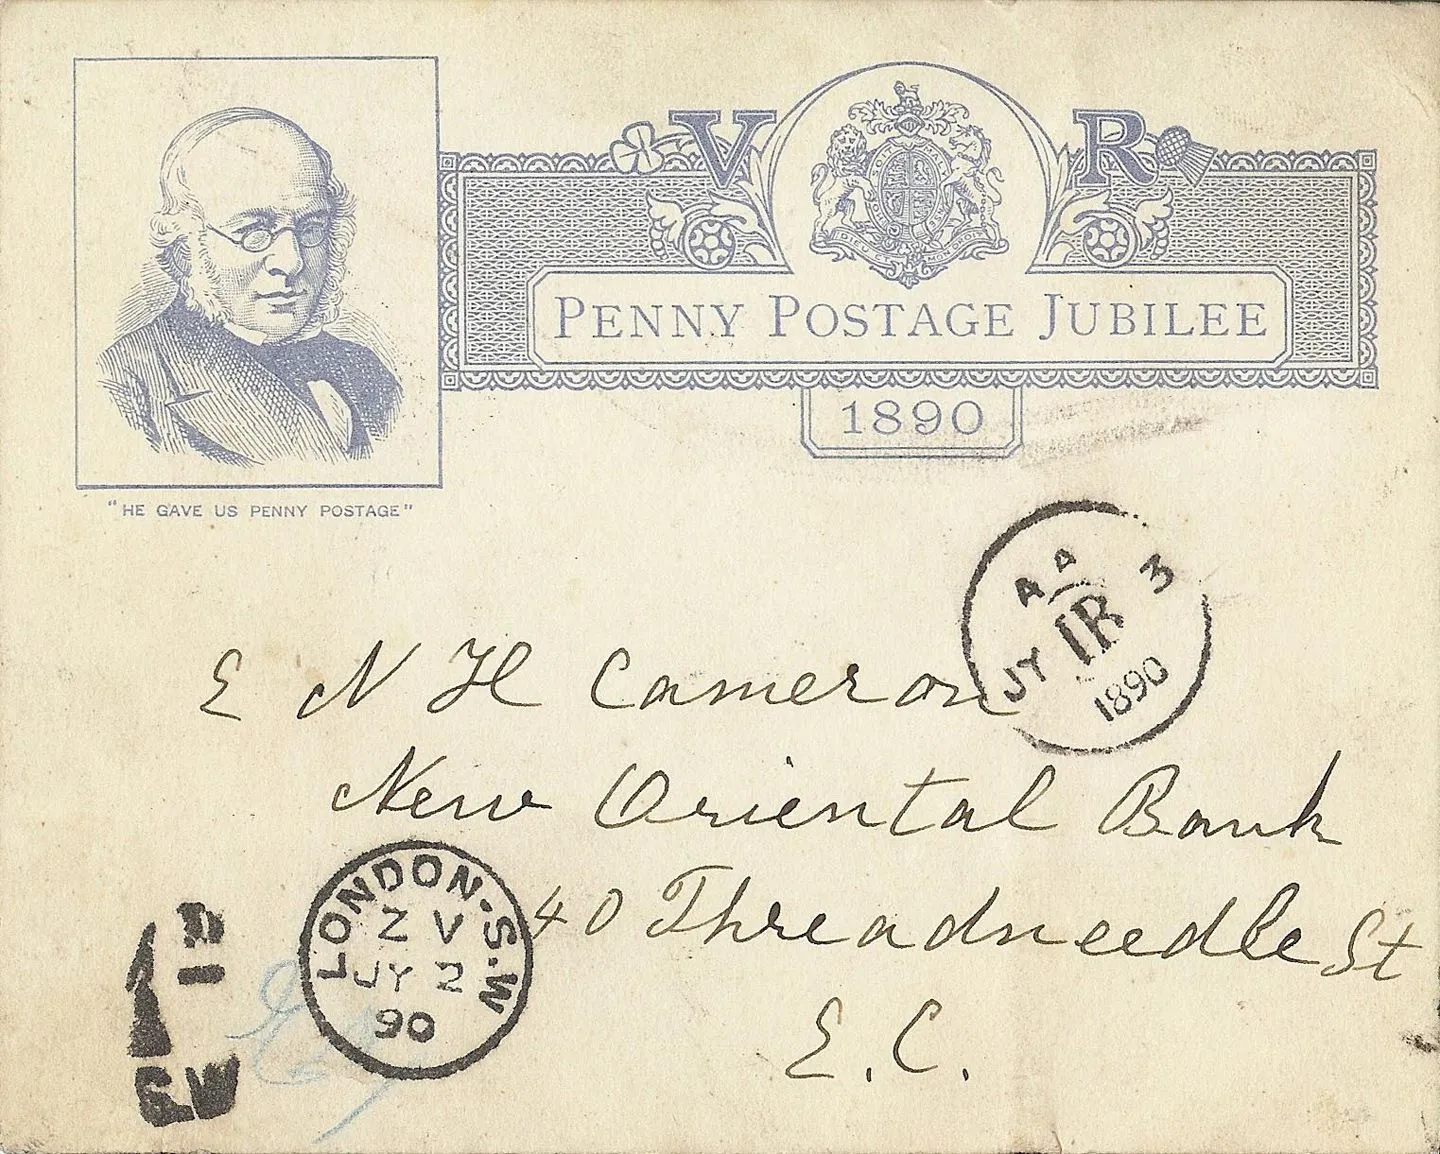 V R
DIEU ET MON DROIT
PENNY POSTAGE JUBILEE
1890
"HE GAVE US PENNY POSTAGE"
AA 3
JY IR
1890
E N H Cameron
New Oriental Bank
40 Threadneedle St
E. C.
LONDON.S.W
Z V
JY 2
90
S.W